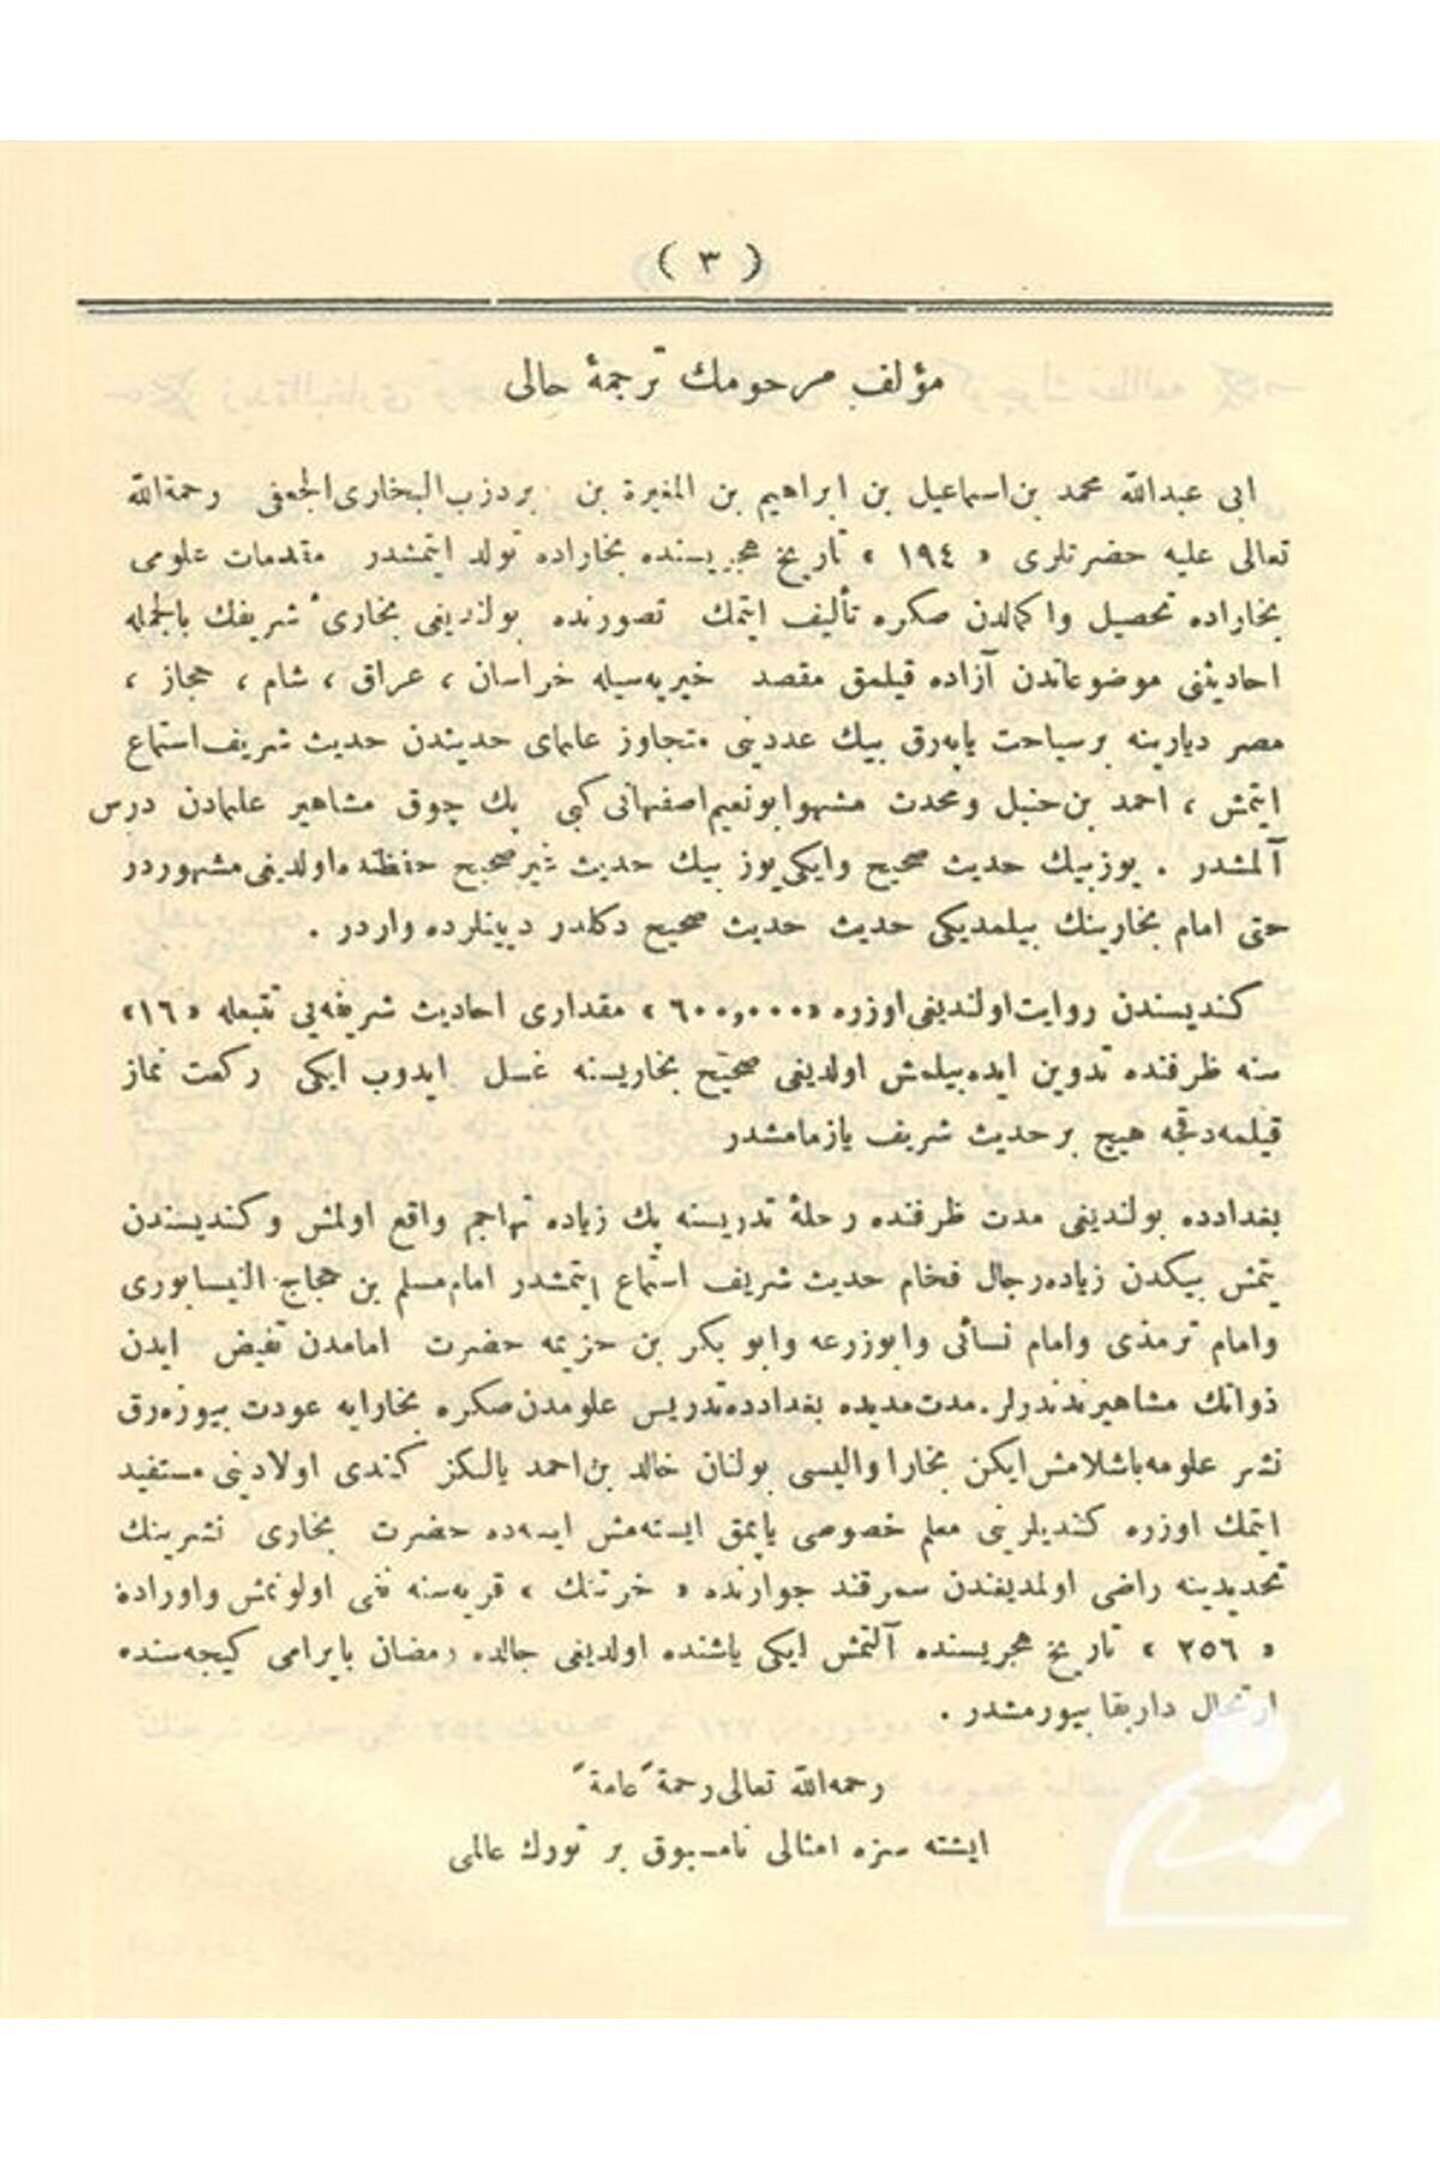 ( ٣ )
مؤلف مرحومك ترجمهٔ حالی
ابی عبدالله محمد بن‌اسماعیل بن ابراهیم بن المغیرة بن بردزب‌البخاری‌الجعفی رحمةالله
تعالی علیه حضرتلری « ١٩٤ » تاریخ هجریسنده بخاراده تولد ایتمشدر مقدمات علومی
بخاراده تحصیل واكمالدن صكره تألیف ایتمك تصورنده بولندیغی بخاریٔ شریفك بالجمله
احادیثنی موضوعاتدن آزاده قیلمق مقصد خیریه‌سیله خراسان ، عراق ، شام ، حجاز ،
مصر دیارینه برسیاحت یاپه‌رق بیك عددینی متجاوز علمای حدیثدن حدیث شریف‌استماع
ایتمش ، احمد بن‌حنبل ومحدث مشهوابونعیم‌اصفهانی‌كبی پك چوق مشاهیر علمادن درس
آلمشدر . یوزبیك حدیث صحیح وایكی‌یوز بیك حدیث غیرصحیح حفظنده‌اولدیغی‌مشهوردر
حتی امام بخارینك بیلمدیكی حدیث حدیث صحیح دكلدر دیینلرده واردر .
كندیسندن روایت‌اولندیغی‌اوزره «٦٠٠,٠٠٠ » مقداری احادیث شریفه‌یی تتبعله «١٦»
سنه ظرفنده تدوین ایده‌بیلمش اولدیغی صحیح بخاریسنه غسل ایدوب ایكی ركعت نماز
قیلمه‌دقجه هیچ برحدیث شریف یازمامشدر
بغدادده بولندیغی مدت ظرفنده رحلهٔ تدریسنه پك زیاده تهاجم واقع اولمش وكندیسندن
یتمش بیكدن زیاده‌رجال فخام حدیث شریف استماع ایتمشدر امام‌مسلم بن حجاج النیسابوری
وامام ترمذی وامام نسائی وابوزرعه وابو بكر بن حزیمه حضرت امامدن تفیض ایدن
ذواتك مشاهیرندندرلر.مدت‌مدیده بغدادده‌تدریس علومدن‌صكره بخارایه عودت بیوره‌رق
نشر علومه‌باشلامش‌ایكن بخارا والیسی بولنان خالد بن‌احمد یالكز كندی اولادینی مستفید
ایتمك اوزره كندیلرینی معلم خصوصی یاپمق ایسته‌مش ایسه‌ده حضرت بخاری نشرینك
تحدیدینه راضی اولمدیغندن سمرقند جوارنده « خرتنك » قریه‌سنه نفی اولونمش واوراده
« ٢٥٦ » تاریخ هجریسنده آلتمش ایكی یاشنده اولدیغی حالده رمضان بایرامی كیجه‌سنده
ارتحال داربقا بیورمشدر .
رحمه‌الله تعالی‌رحمةً عامةً
ایشته سزه امثالی نامسبوق بر تورك عالمی